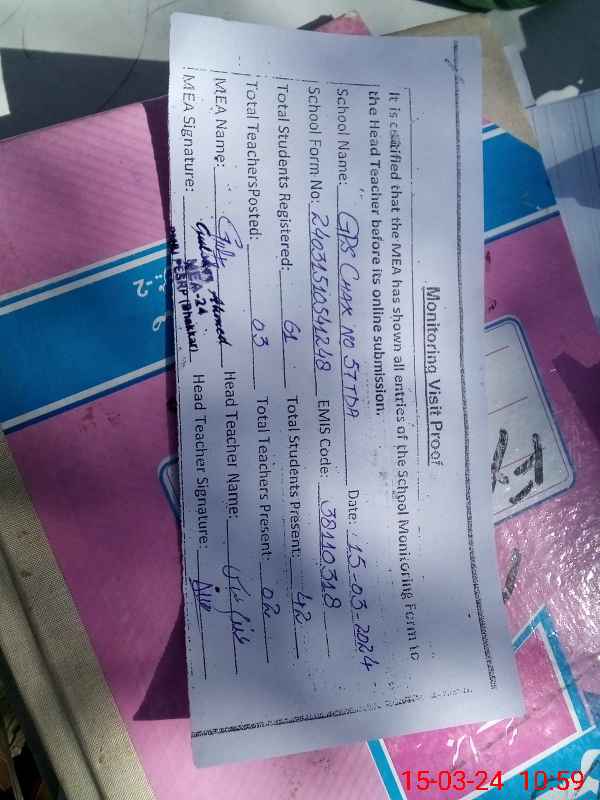 Monitoring Visit Proof
It is certified that the MEA has shown all entries of the School Monitoring Form to
the Head Teacher before its online submission.
School Name: GPS CHAK NO 57 TDA Date: 15-03-2024
School Form No: EMIS Code: 38110318
Total Students Registered: 61 Total Students Present: 42
Total TeachersPosted: 03 Total Teachers Present: 02
MEA Name: Ahmed Head Teacher Name:
MEA Signature: MEA-24 Head Teacher Signature:
(Bhakkar)
15-03-24 10:59